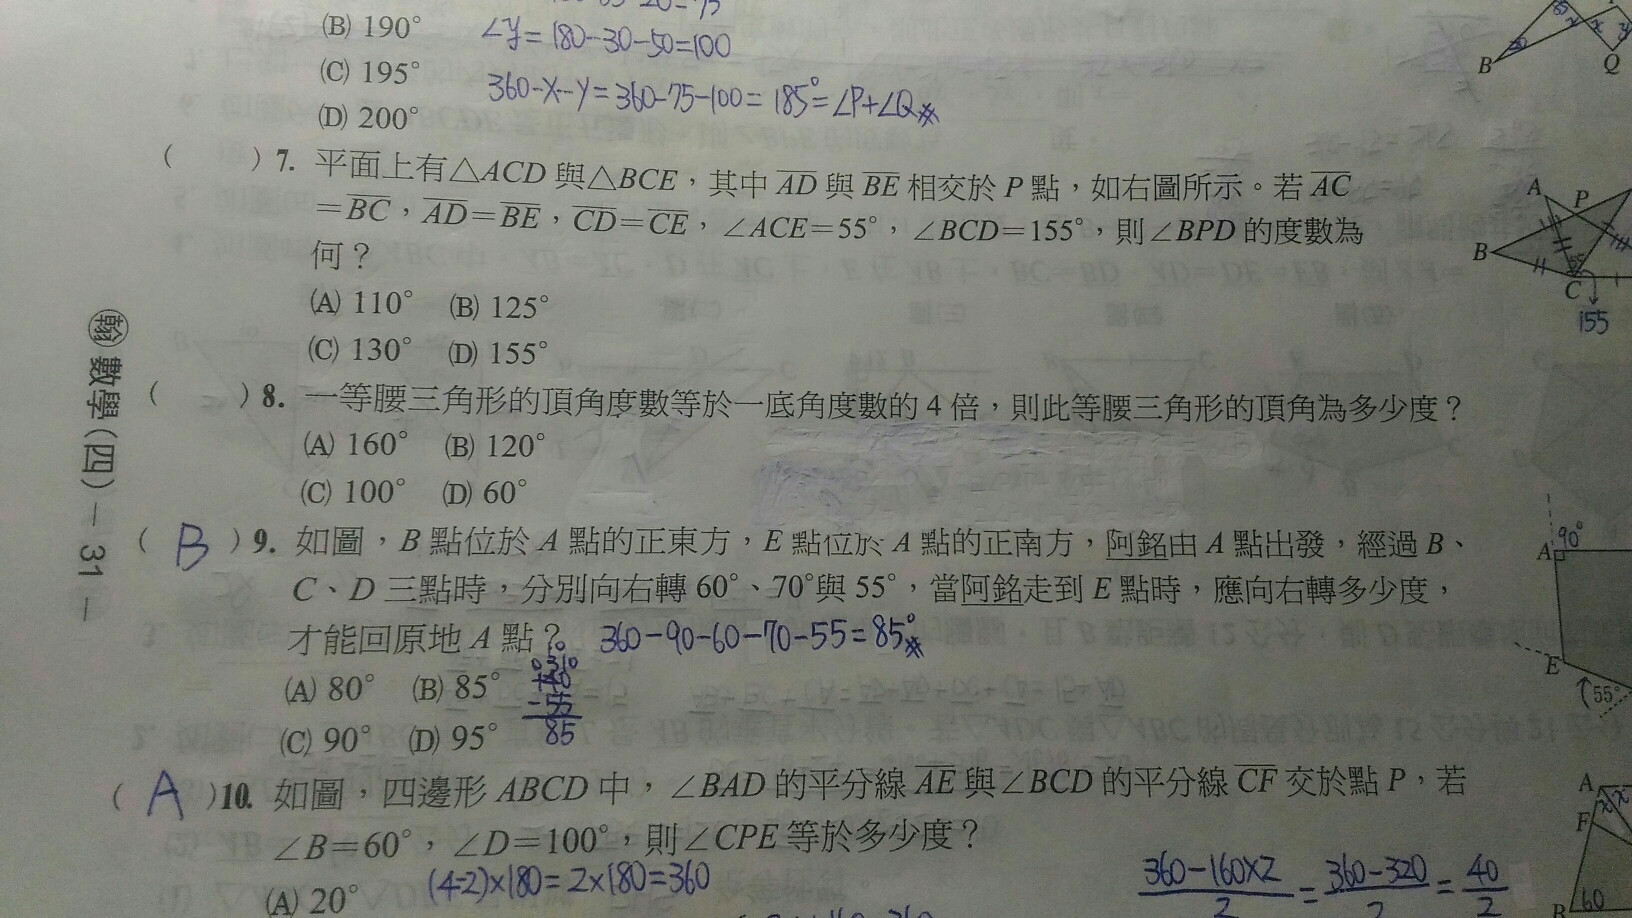 (B) 190°
∠y=180-30-50=100
B
Q
(C) 195°
360-x-y=360-75-100=185°=∠P+∠Q※
(D) 200°
( ) 7. 平面上有△ACD與△BCE，其中AD與BE相交於P點，如右圖所示。若AC
=BC，AD=BE，CD=CE，∠ACE=55°，∠BCD=155°，則∠BPD的度數為
何？
A
P
B
C
155
(A) 110° (B) 125°
(C) 130° (D) 155°
( ) 8. 一等腰三角形的頂角度數等於一底角度數的4倍，則此等腰三角形的頂角為多少度？
(A) 160° (B) 120°
(C) 100° (D) 60°
( B ) 9. 如圖，B點位於A點的正東方，E點位於A點的正南方，阿銘由A點出發，經過B、
C、D三點時，分別向右轉60°、70°與55°，當阿銘走到E點時，應向右轉多少度，
才能回原地A點？ 360-90-60-70-55=85°※
A
90°
E
55°
(A) 80° (B) 85°
-55
85
(C) 90° (D) 95°
( A ) 10. 如圖，四邊形ABCD中，∠BAD的平分線AE與∠BCD的平分線CF交於點P，若
∠B=60°，∠D=100°，則∠CPE等於多少度？
A
x x
F
B
60
(A) 20°
(4-2)×180=2×180=360
360-160×2/2=360-320/2=40/2
翰 數學(四)－31－